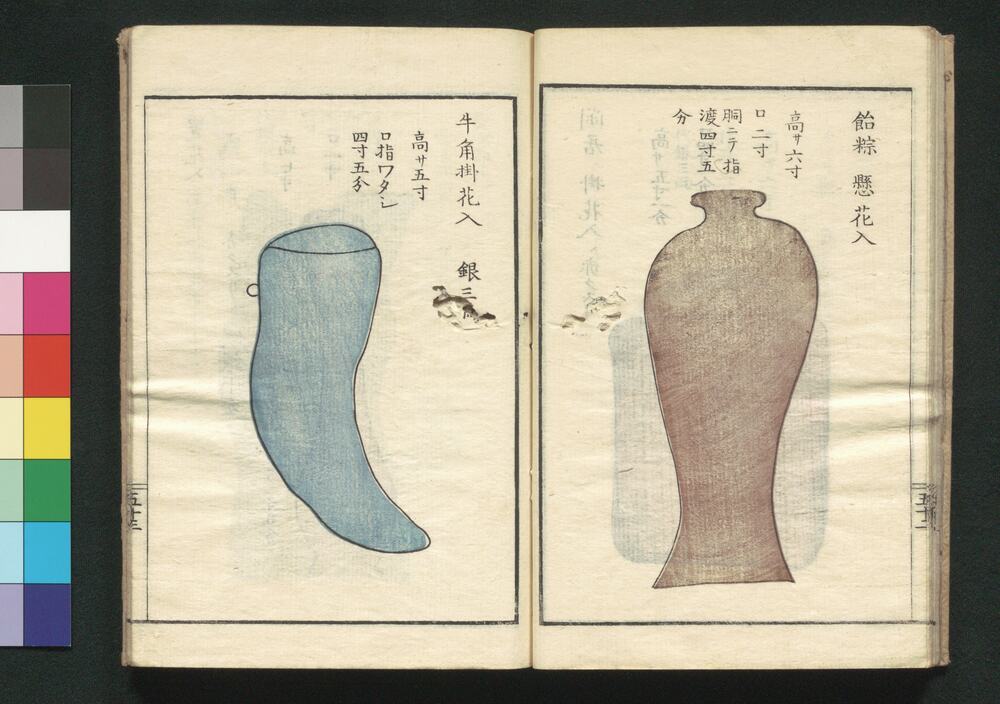 飴粽 懸花入
高サ六寸
口二寸
胴ニテ指
渡四寸五
分
五十二
牛角掛花入 銀三
高サ五寸
口指ワタシ
四寸五分
五十三